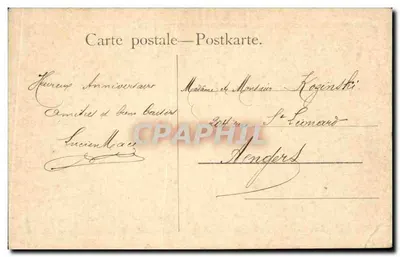 Carte postale—Postkarte.
Heureux Anniversaire
Amitiés et bons baisers
Lucien Macé
Madame et Monsieur Kozinski
204 r. St Léonard
Angers
CPAPHIL